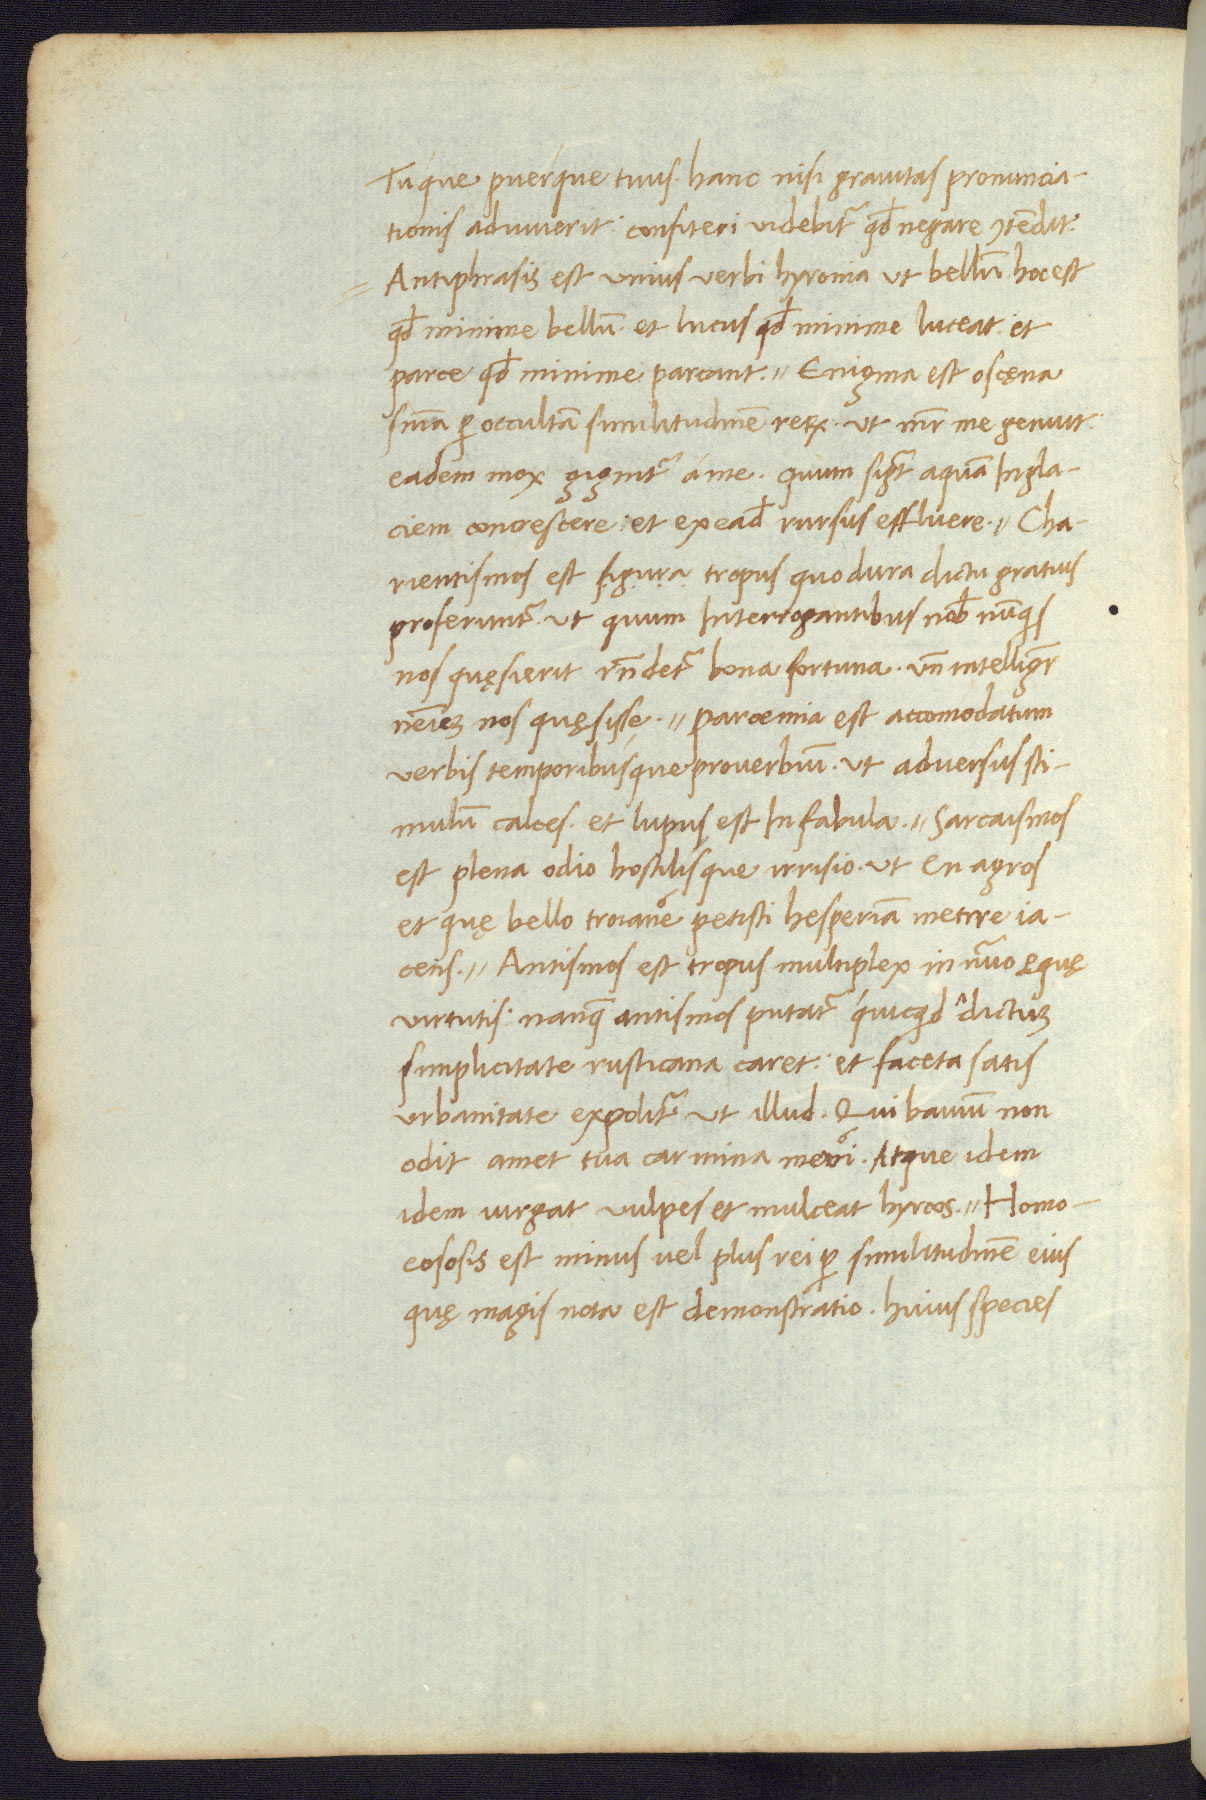 Túque puerque tuus. hanc nisi grauitas pronuncia-
tionis adiuuerit: confiteri uidebit᷑ qđ negare ꝯtēdit:
Antiphrasis est unius uerbi hyronia ut bellū hoc est
qđ minime bellū. et lucus qđ minime luceat. et
parce qđ minime parcant.〃 Enigma est oscęna
sn̄ia ꝑ occultā similitudinē reꝝ. ut mr̄ me genuit:
eadem mox gignit᷑ á me. quum sigt̄ aquā In gla-
ciem concrescere: et ex eađ rursus effluere.〃 Cha-
rientismos est figura tropus quo dura dictu gratius
proferunt᷑. ut quum Interrogantibus nob̄ nūqis
nos quęsierit rn̄det᷑ bona fortuna. un̄ intelligr̄
nēiēꝫ nos quęsisse.〃 Paroemia est accomodatum
uerbis temporibúsque prouerbiū. ut aduersus sti-
mulū calces. et lupus est In fabula.〃 Sarcaismos
est plena odio hostilísque irrisio. ut En agros
et quę bello troianͦe petisti hesperiā metire ia-
cens.〃 Antismos est tropus multiplex in nūo ęquę
uirtutis: nanq̄ antismos putat᷑ quicqid dictúꝫ
simplicitate rusticana caret: et faceta satis
urbanitate expolit᷑ ut illud. Qui bauiū non
odit amet tua carmina meuͦi. Atque idem
idem iurgat uulpes et mulceat hyrcos.〃 Homo-
eososis est minus uel plus rei ꝑ similitudinē eius
quę magis nota est demonstratio. huius species